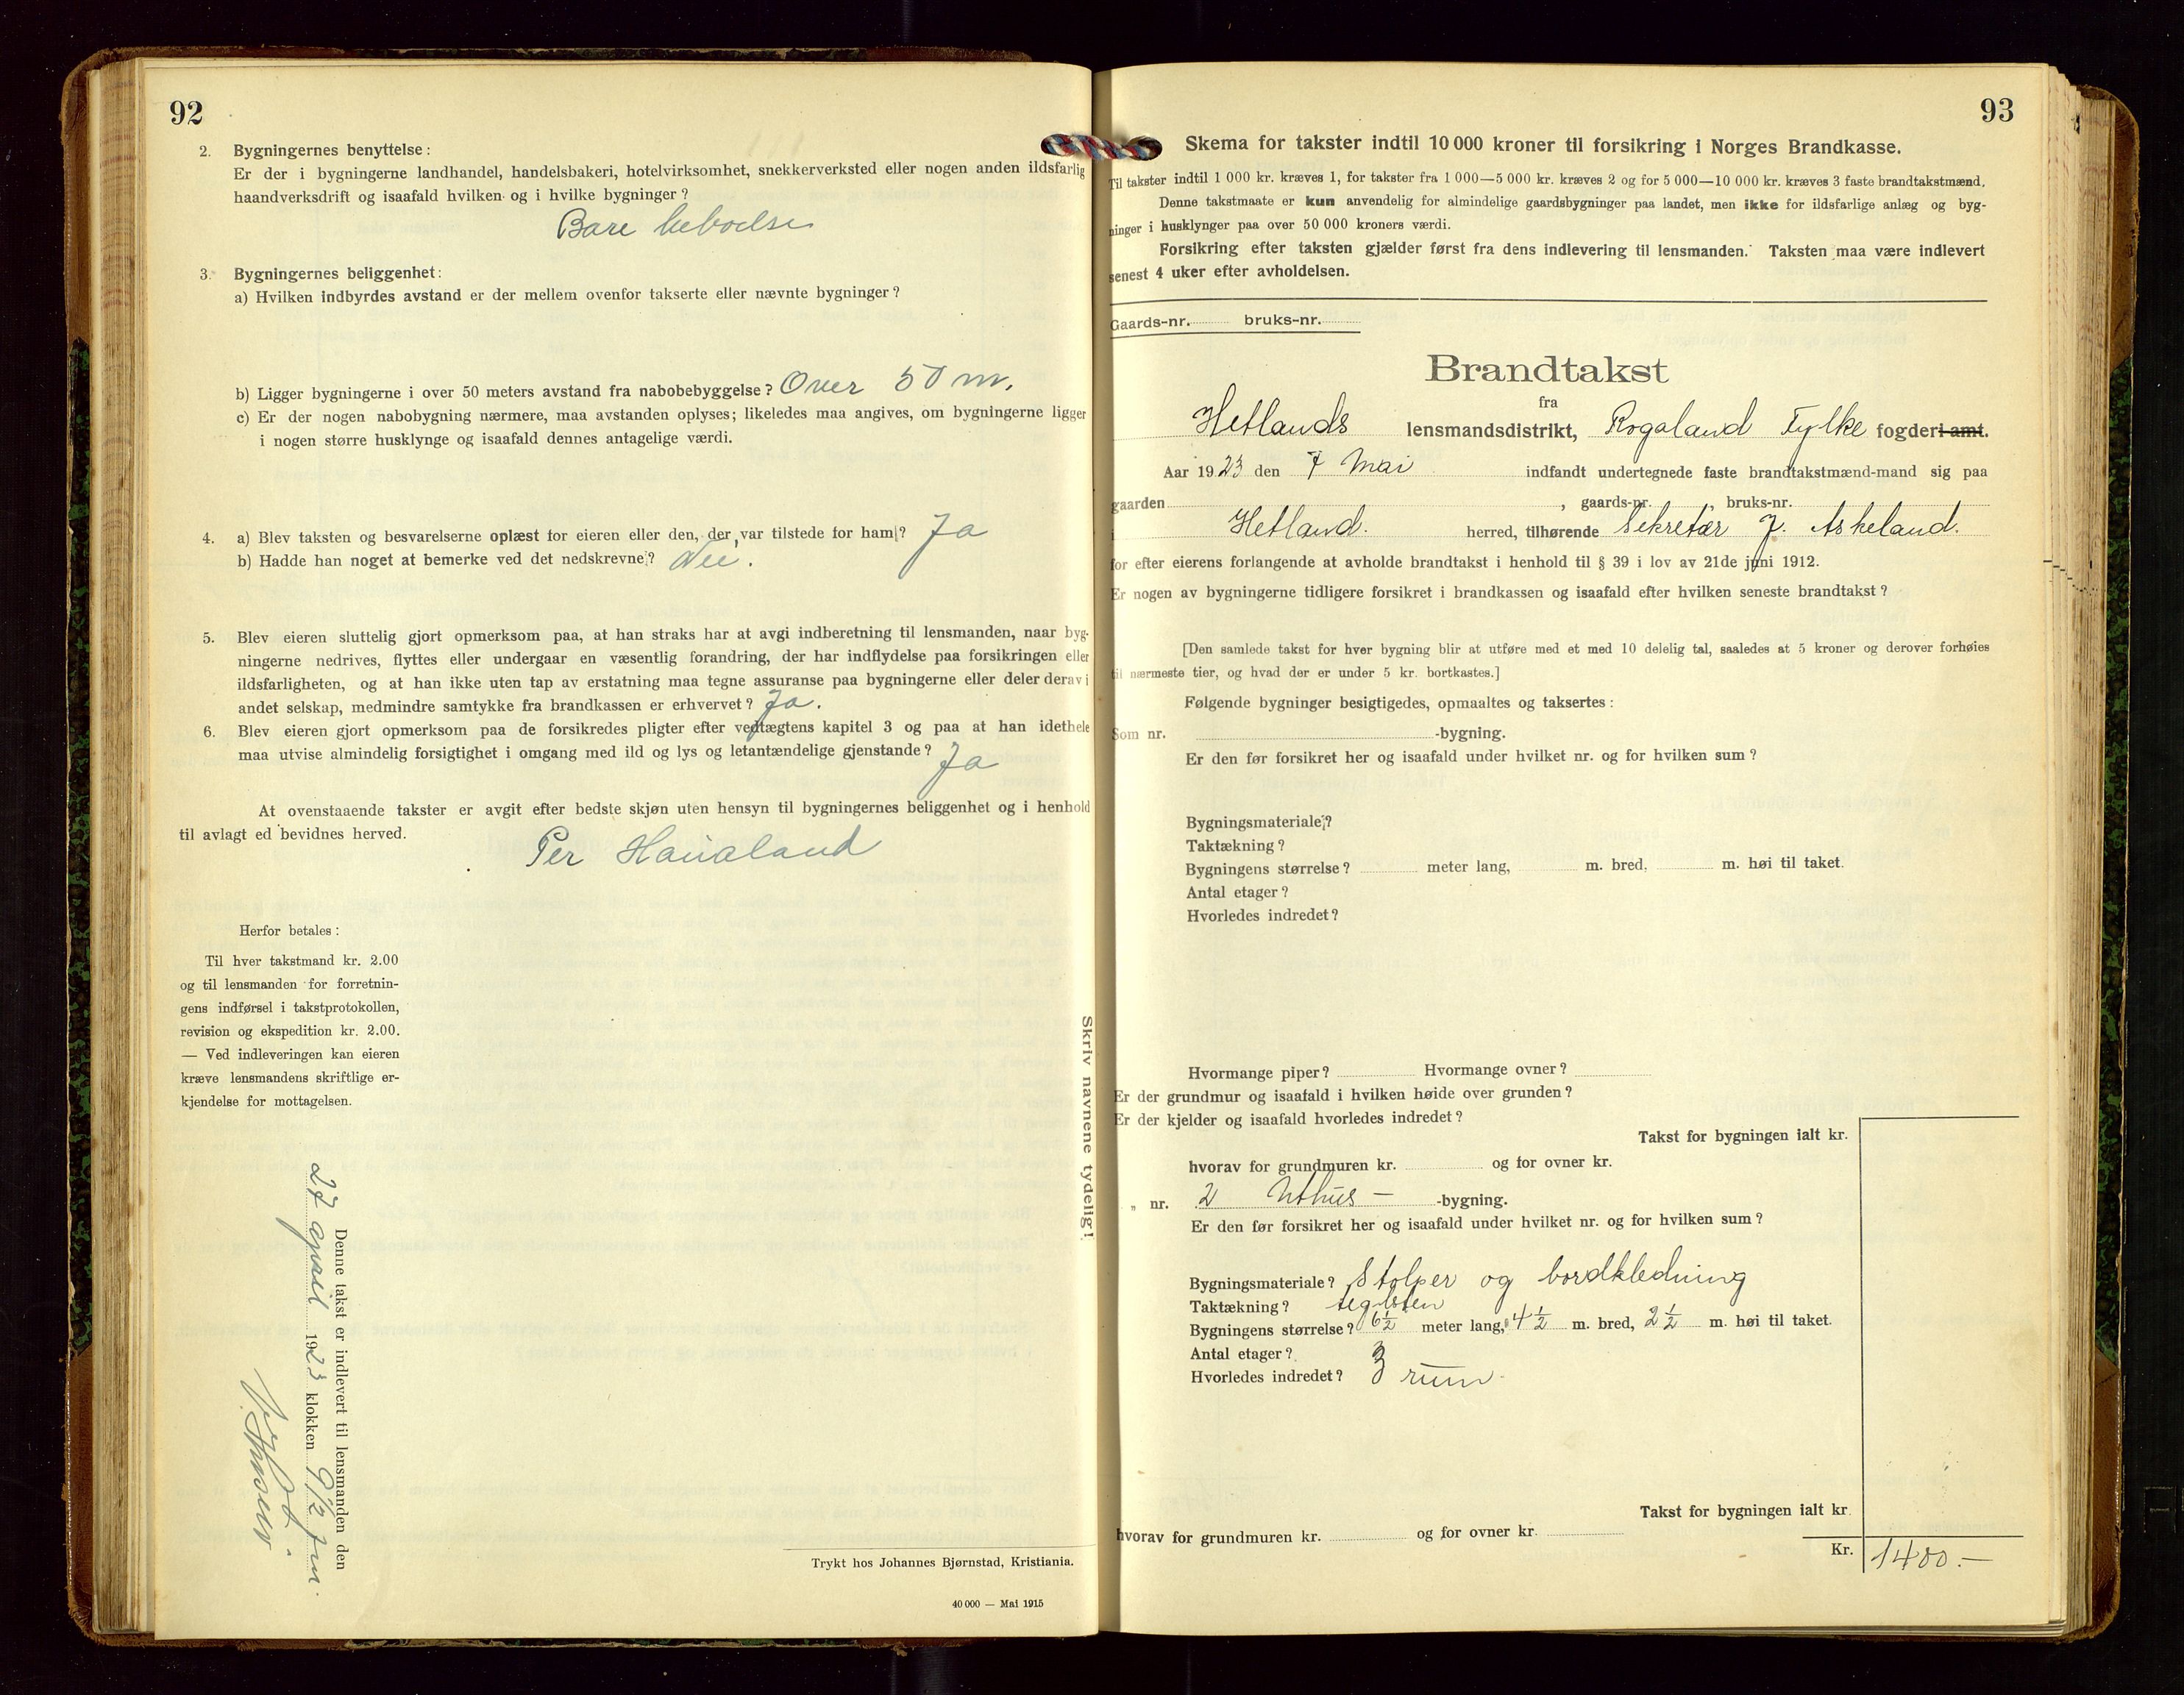 92
2. Bygningernes benyttelse:
Er der i bygningerne landhandel, handelsbakeri, hotelvirksomhet, snekkerverksted eller nogen anden ildsfarlig
haandverksdrift og isaafald hvilken og i hvilke bygninger?
Bare beboelse
3. Bygningernes beliggenhet:
a) Hvilken indbyrdes avstand er der mellem ovenfor takserte eller nævnte bygninger?
b) Ligger bygningerne i over 50 meters avstand fra nabobebyggelse? Over 50 m.
c) Er der nogen nabobygning nærmere, maa avstanden oplyses; likeledes maa angives, om bygningerne ligger
i nogen større husklynge og isaafald dennes antagelige værdi.
4. a) Blev taksten og besvarelserne oplæst for eieren eller den, der var tilstede for ham? Ja
b) Hadde han noget at bemerke ved det nedskrevne? Nei.
5. Blev eieren sluttelig gjort opmerksom paa, at han straks har at avgi indberetning til lensmanden, naar byg-
ningerne nedrives, flyttes eller undergaar en væsentlig forandring, der har indflydelse paa forsikringen eller
ildsfarligheten, og at han ikke uten tap av erstatning maa tegne assuranse paa bygningerne eller deler derav i
andet selskap, medmindre samtykke fra brandkassen er erhvervet? Ja.
6. Blev eieren gjort opmerksom paa de forsikredes pligter efter vedtægtens kapitel 3 og paa at han idethele
maa utvise almindelig forsigtighet i omgang med ild og lys og letantændelige gjenstande? Ja
At ovenstaaende takster er avgit efter bedste skjøn uten hensyn til bygningernes beliggenhet og i henhold
til avlagt ed bevidnes herved.
Per Haualand
Herfor betales:
Til hver takstmand kr. 2.00
og til lensmanden for forretnin-
gens indførsel i takstprotokollen,
revision og ekspedition kr. 2.00.
— Ved indleveringen kan eieren
kræve lensmandens skriftlige er-
kjendelse for mottagelsen.
Denne takst er indlevert til lensmanden den
27 april 1923 klokken 9 1/2 fm.
Skriv navnene tydelig!
Trykt hos Johannes Bjørnstad, Kristiania.
40 000 — Mai 1915
93
Skema for takster indtil 10 000 kroner til forsikring i Norges Brandkasse.
Til takster indtil 1 000 kr. kræves 1, for takster fra 1 000—5 000 kr. kræves 2 og for 5 000—10 000 kr. kræves 3 faste brandtakstmænd.
Denne takstmaate er kun anvendelig for almindelige gaardsbygninger paa landet, men ikke for ildsfarlige anlæg og byg-
ninger i husklynger paa over 50 000 kroners værdi.
Forsikring efter taksten gjælder først fra dens indlevering til lensmanden. Taksten maa være indlevert
senest 4 uker efter avholdelsen.
Gaards-nr. bruks-nr.
Brandtakst
fra
Hetlands lensmandsdistrikt, Rogaland Fylke fogderi amt.
Aar 1923 den 7 Mai indfandt undertegnede faste brandtakstmænd-mand sig paa
gaarden , gaards-nr. , bruks-nr.
i Hetland. herred, tilhørende Sekretær J. Askeland.
for efter eierens forlangende at avholde brandtakst i henhold til § 39 i lov av 21de juni 1912.
Er nogen av bygningerne tidligere forsikret i brandkassen og isaafald efter hvilken seneste brandtakst?
[Den samlede takst for hver bygning blir at utføre med et med 10 delelig tal, saaledes at 5 kroner og derover forhøies
til nærmeste tier, og hvad der er under 5 kr. bortkastes.]
Følgende bygninger besigtigedes, opmaaltes og taksertes:
Som nr. -bygning.
Er den før forsikret her og isaafald under hvilket nr. og for hvilken sum?
Bygningsmateriale?
Taktækning?
Bygningens størrelse? meter lang, m. bred, m. høi til taket.
Antal etager?
Hvorledes indredet?
Hvormange piper? Hvormange ovner?
Er der grundmur og isaafald i hvilken høide over grunden?
Er der kjelder og isaafald hvorledes indredet?
Takst for bygningen ialt kr.
hvorav for grundmuren kr. og for ovner kr.
„ nr. 2 Uthus - -bygning.
Er den før forsikret her og isaafald under hvilket nr. og for hvilken sum?
Bygningsmateriale? Stolper og bordkledning
Taktækning? teglsten
Bygningens størrelse? 6 1/2 meter lang, 4 1/2 m. bred, 2 1/2 m. høi til taket.
Antal etager?
Hvorledes indredet? 3 rum
Takst for bygningen ialt kr.
hvorav for grundmuren kr. og for ovner kr.
Kr. 1400.-